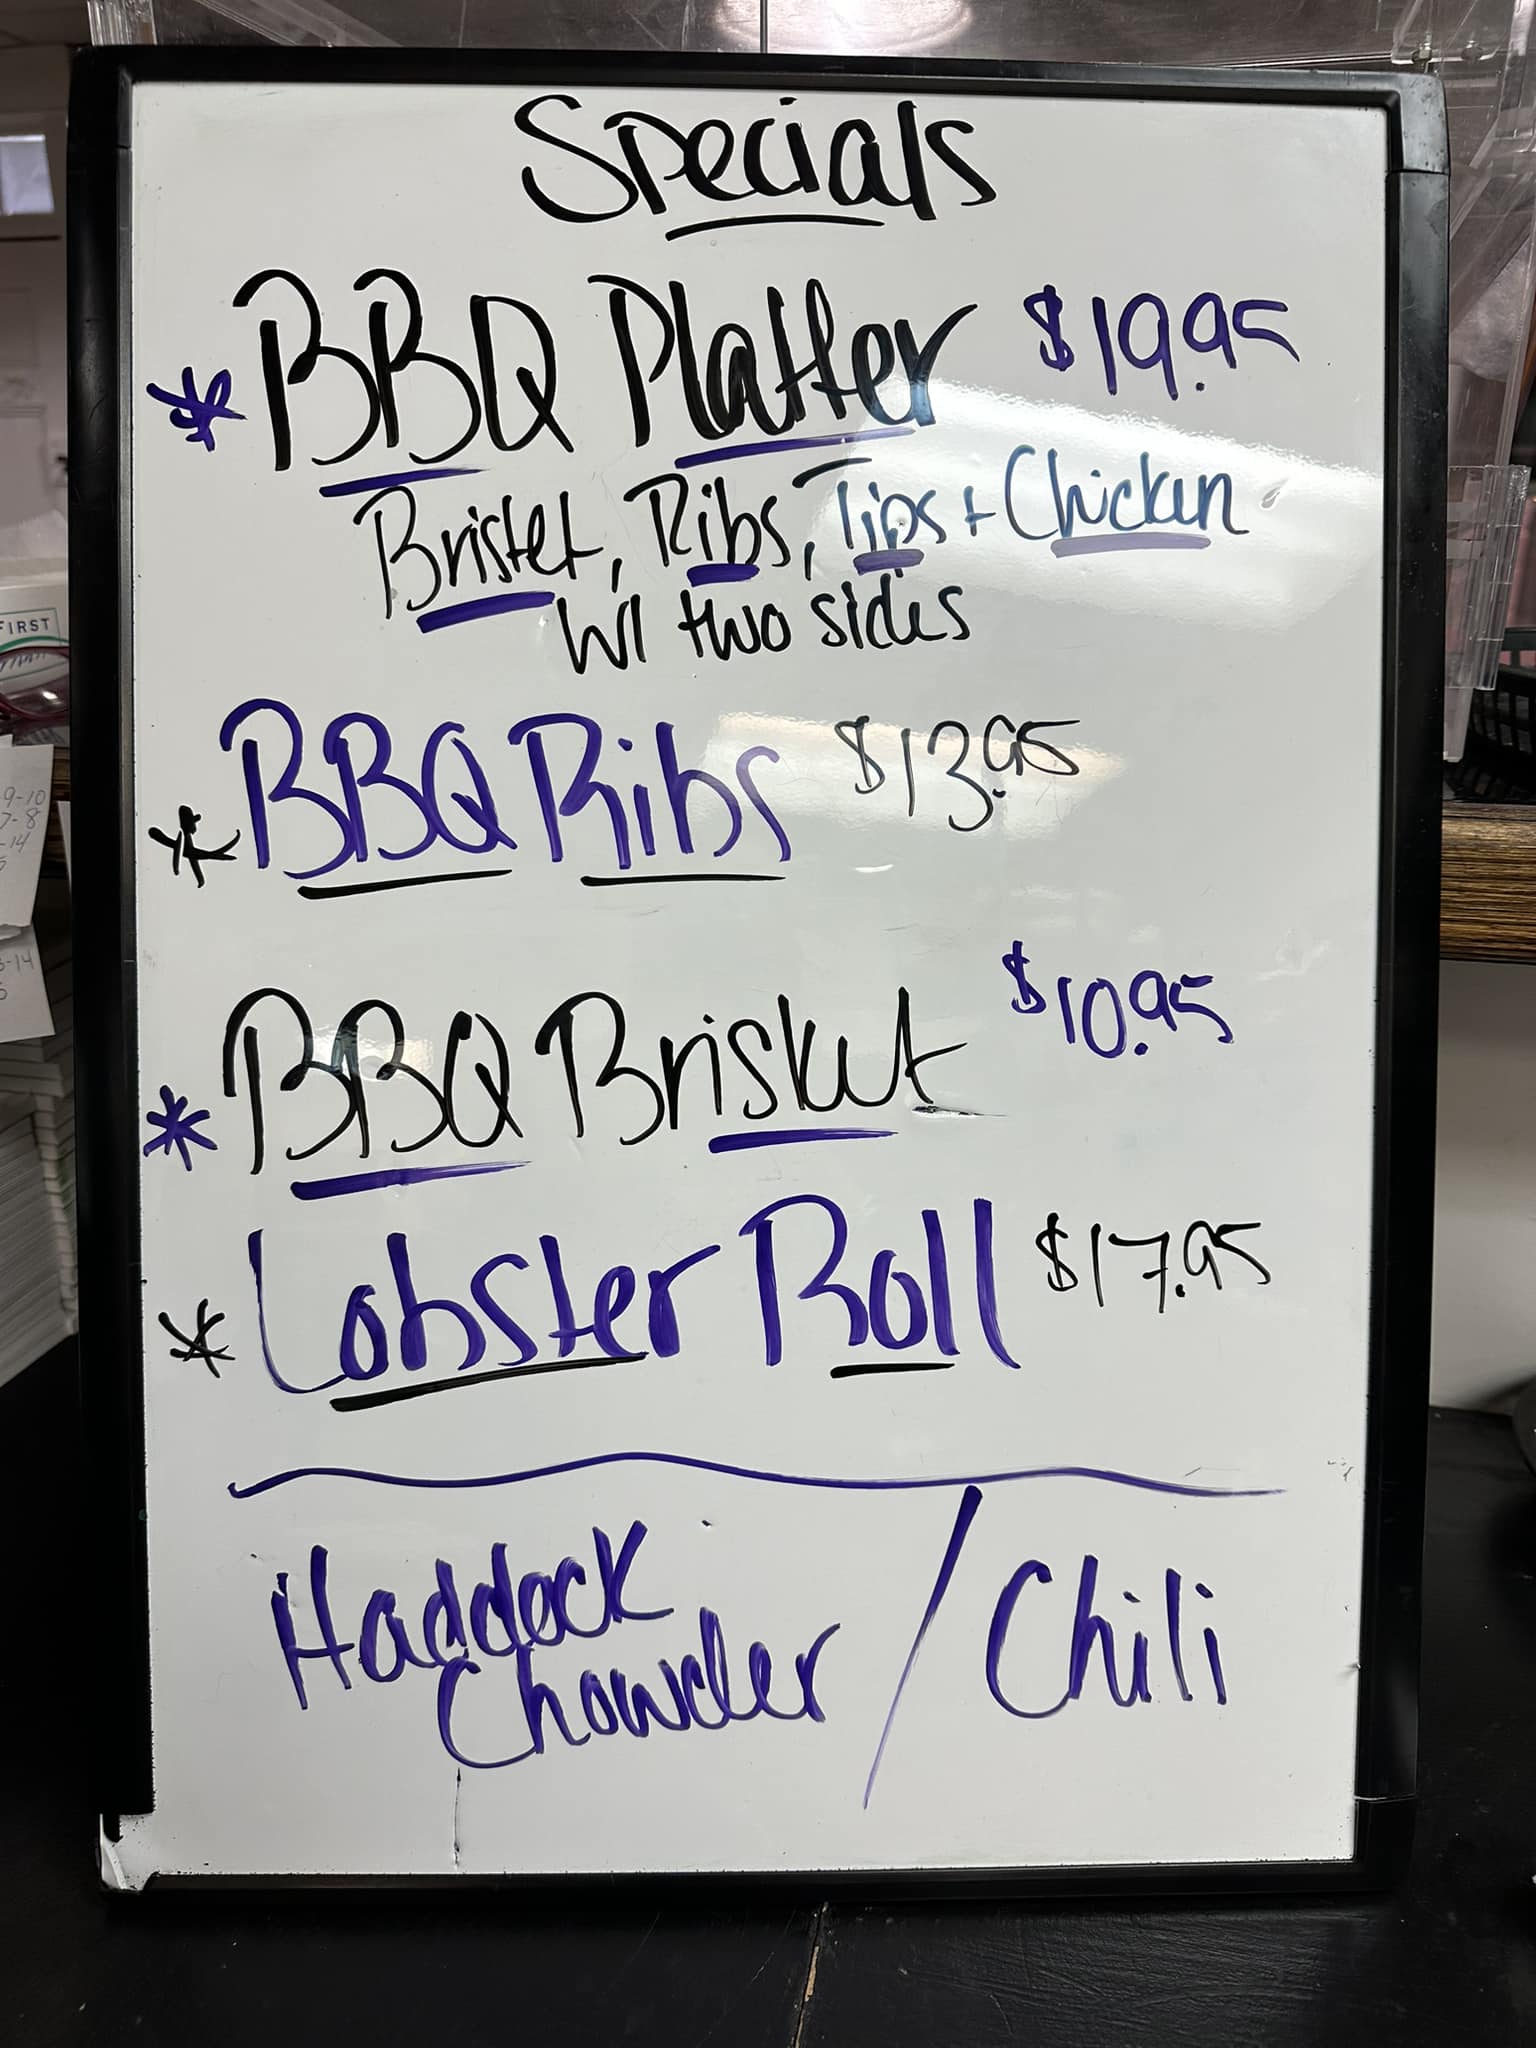 Specials
* BBQ Platter $19.95
Brisket, Ribs, Tips + Chicken
w/ two sides
* BBQ Ribs $13.95
* BBQ Brisket $10.95
* Lobster Roll $17.95
Haddock / Chili
Chowder
FIRST
9-10
7-8
-14
3-14